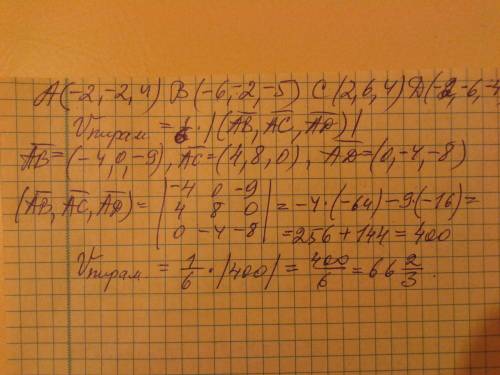 A(-2,-2,4) B(-6,-2,-5) C(2,6,4) D(-2,-6,-4
Vпирам = 1/6 · |(AB, AC, AD)|
AB = (-4,0,-9), AC = (4,8,0), AD = (0,-4,-8)
(AB, AC, AD) = | -4 0 -9 | = -4·(-64) - 9·(-16) =
| 4 8 0 |
| 0 -4 -8 | = 256 + 144 = 400
Vпирам = 1/6 · |400| = 400/6 = 66 2/3.